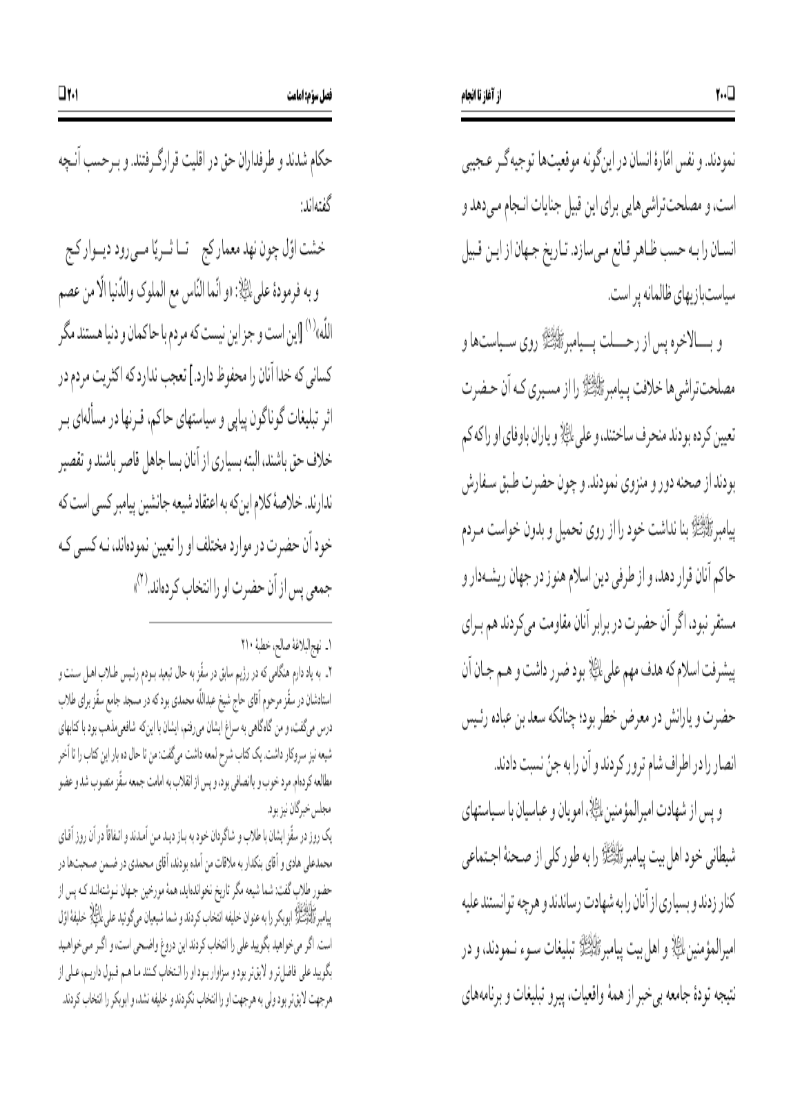 ❏۲۰۰ از آغاز تا انجام
نمودند. و نفس امّارهٔ انسان در این‌گونه موقعیت‌ها توجیه‌گر عجیبی
است، و مصلحت‌تراشی‌هایی برای این قبیل جنایات انجام می‌دهد و
انسان را به حسب ظاهر قانع می‌سازد. تاریخ جهان از این قبیل
سیاست‌بازیهای ظالمانه پر است.
و بالاخره پس از رحلت پیامبرﷺ روی سیاست‌ها و
مصلحت‌تراشی‌ها خلافت پیامبرﷺ را از مسیری که آن حضرت
تعیین کرده بودند منحرف ساختند، و علی؏ و یاران باوفای او را که کم
بودند از صحنه دور و منزوی نمودند. و چون حضرت طبق سفارش
پیامبرﷺ بنا نداشت خود را از روی تحمیل و بدون خواست مردم
حاکم آنان قرار دهد، و از طرفی دین اسلام هنوز در جهان ریشه‌دار و
مستقر نبود، اگر آن حضرت در برابر آنان مقاومت می‌کردند هم برای
پیشرفت اسلام که هدف مهم علی؏ بود ضرر داشت و هم جان آن
حضرت و یارانش در معرض خطر بود؛ چنانکه سعد بن عباده رئیس
انصار را در اطراف شام ترور کردند و آن را به جنّ نسبت دادند.
و پس از شهادت امیرالمؤمنین؏، امویان و عباسیان با سیاستهای
شیطانی خود اهل بیت پیامبرﷺ را به طور کلی از صحنهٔ اجتماعی
کنار زدند و بسیاری از آنان را به شهادت رساندند و هرچه توانستند علیه
امیرالمؤمنین؏ و اهل بیت پیامبرﷺ تبلیغات سوء نمودند، و در
نتیجه تودهٔ جامعه بی‌خبر از همهٔ واقعیات، پیرو تبلیغات و برنامه‌های
فصل سوّم: امامت ۲۰۱❏
حکام شدند و طرفداران حق در اقلیت قرار گرفتند. و برحسب آنچه
گفته‌اند:
خشت اوّل چون نهد معمار کج تا ثریّا می‌رود دیوار کج
و به فرمودهٔ علی؏: «و انّما النّاس مع الملوک والدّنیا الّا من عصم
اللّه»(۱) [این است و جز این نیست که مردم با حاکمان و دنیا هستند مگر
کسانی که خدا آنان را محفوظ دارد.] تعجب ندارد که اکثریت مردم در
اثر تبلیغات گوناگون پیاپی و سیاستهای حاکم، قرنها در مسأله‌ای بر
خلاف حق باشند، البته بسیاری از آنان بسا جاهل قاصر باشند و تقصیر
ندارند. خلاصهٔ کلام این‌که به اعتقاد شیعه جانشین پیامبر کسی است که
خود آن حضرت در موارد مختلف او را تعیین نموده‌اند، نه کسی که
جمعی پس از آن حضرت او را انتخاب کرده‌اند.(۲)»
۱ـ نهج‌البلاغهٔ صالح، خطبهٔ ۲۱۰
۲ـ به یاد دارم هنگامی که در رژیم سابق در سقّز به حال تبعید بودم رئیس طلاب اهل سنت و
استادشان در سقّز مرحوم آقای حاج شیخ عبداللّه محمدی بود که در مسجد جامع سقّز برای طلاب
درس می‌گفت، و من گاه‌گاهی به سراغ ایشان می‌رفتم، ایشان با این‌که شافعی‌مذهب بود با کتابهای
شیعه نیز سروکار داشت. یک کتاب شرح لمعه داشت می‌گفت: من تا حال ده بار این کتاب را تا آخر
مطالعه کرده‌ام. مرد خوب و باانصافی بود، و پس از انقلاب به امامت جمعه سقّز منصوب شد و عضو
مجلس خبرگان نیز بود.
یک روز در سقّز ایشان با طلاب و شاگردان خود به باز دید من آمدند و اتفاقاً در آن روز آقای
محمدعلی هادی و آقای بنکدار به ملاقات من آمده بودند، آقای محمدی در ضمن صحبت‌ها در
حضور طلاب گفت: شما شیعه مگر تاریخ نخوانده‌اید، همهٔ مورخین جهان نوشته‌اند که پس از
پیامبرﷺ ابوبکر را به عنوان خلیفه انتخاب کردند و شما شیعیان می‌گوئید علی؏ خلیفهٔ اوّل
است. اگر می‌خواهید بگویید علی را انتخاب کردند این دروغ واضحی است، و اگر می‌خواهید
بگویید علی فاضل‌تر و لایق‌تر بود و سزاوار بود او را انتخاب کنند ما هم قبول داریم، علی از
هرجهت لایق‌تر بود ولی به هرجهت او را انتخاب نکردند و خلیفه نشد، و ابوبکر را انتخاب کردند.